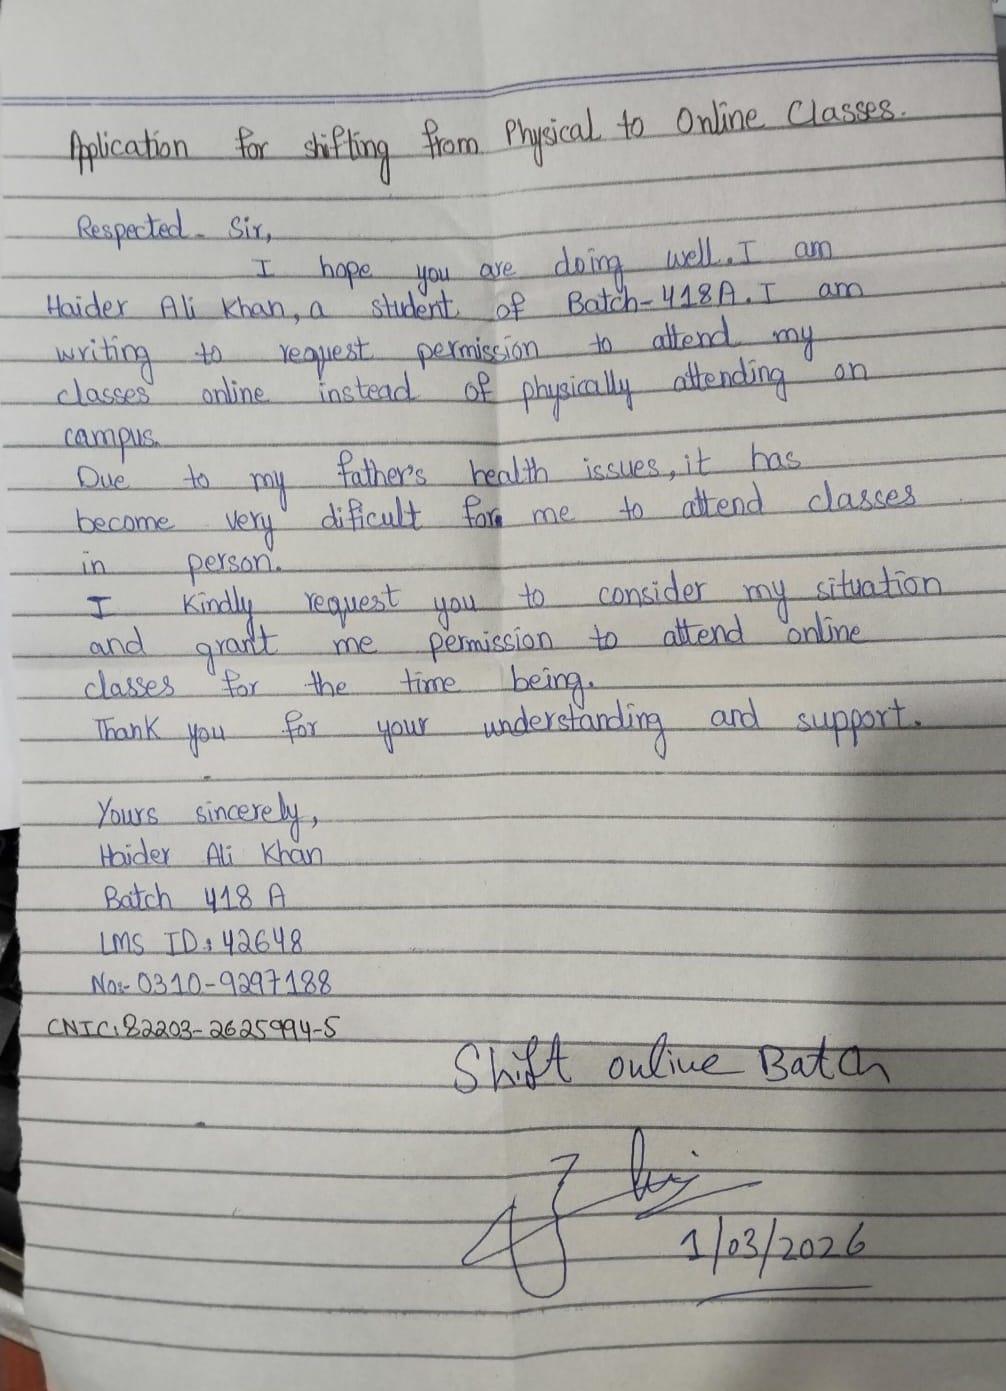 Application for shifting from Physical to Online Classes.
Respected Sir,
I hope you are doing well. I am
Haider Ali Khan, a student of Batch-418A. I am
writing to request permission to attend my
classes online instead of physically attending on
campus.
Due to my father's health issues, it has
become very dificult for me to attend classes
in person.
I Kindly request you to consider my situation
and grant me permission to attend online
classes for the time being.
Thank you for your understanding and support.
Yours sincerely,
Haider Ali Khan
Batch 418 A
LMS ID: 42648
No:- 0310-9297188
CNIC: 82203-2625994-5
Shift online Batch
1/03/2026